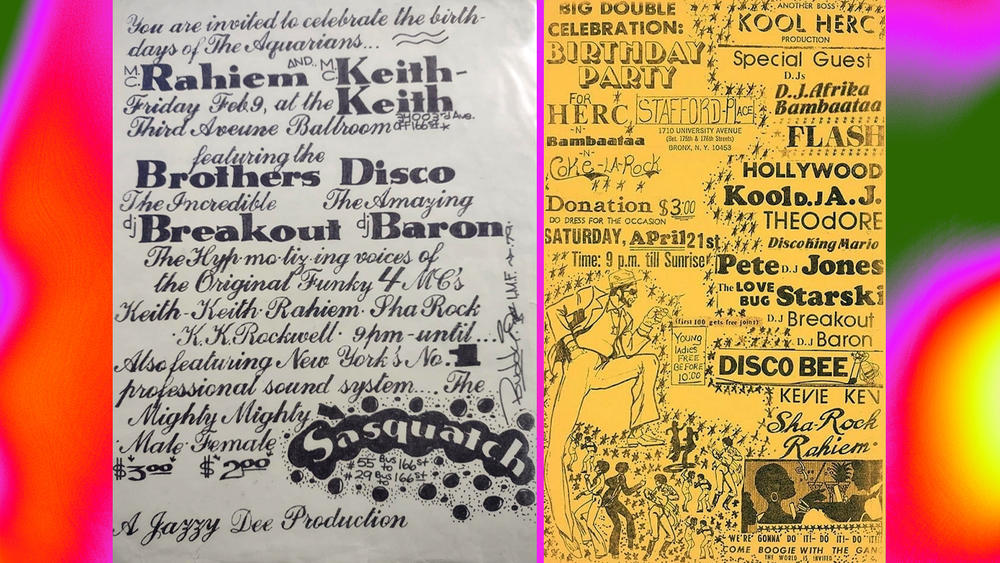 You are invited to celebrate the birth-
days of The Aquarians...
M.C. Rahiem AND.. M.C. Keith-
Keith
Friday Feb. 9, at the
Third Aveune Ballroom
3rd Ave.
off 166st
featuring the
Brothers Disco
The Incredible The Amazing
dj Breakout dj Baron
The Hyp·mo·tiz·ing voices of
the Original Funky 4 MC's
Keith-Keith·Rahiem·Sha Rock
·K.K. Rockwell· 9pm-until...
Also featuring New York's No. 1
professional sound system... The
Mighty Mighty
Sasquatch
Male Female
$3.00 $2.00
#55 Bus to 166st
#29 Bus to 166st
A Jazzy Dee Production
BIG DOUBLE
CELEBRATION:
BIRTHDAY
PARTY
FOR
HERC, STAFFORD-PLACE
-N-
Bambaataa
1710 UNIVERSITY AVENUE
(Bet. 175th & 176th Streets)
BRONX, N.Y. 10453
-N-
Coke-LA-Rock
Donation $3.00
DO DRESS FOR THE OCCASION
SATURDAY, APril 21st
Time: 9 p.m. till Sunrise
(first 100 gets free joint)
YOUNG
ladies
FREE
BEFORE
10:00
ANOTHER BOSS
KOOL HERC
PRODUCTION
Special Guest
D.Js
D.J. Afrika
Bambaataa
FLASH
HOLLYWOOD
Kool D.J A.J.
THEOdORE
Disco King Mario
Pete D.J Jones
The LOVE BUG Starski
D.J Breakout
D.J Baron
DISCO BEE
KEVIE KEV
Sha-Rock
Rahiem
WE'RE GONNA DO IT!- DO IT!- DO IT!!
COME BOOGIE WITH THE GANG
THE WORLD IS INVITED